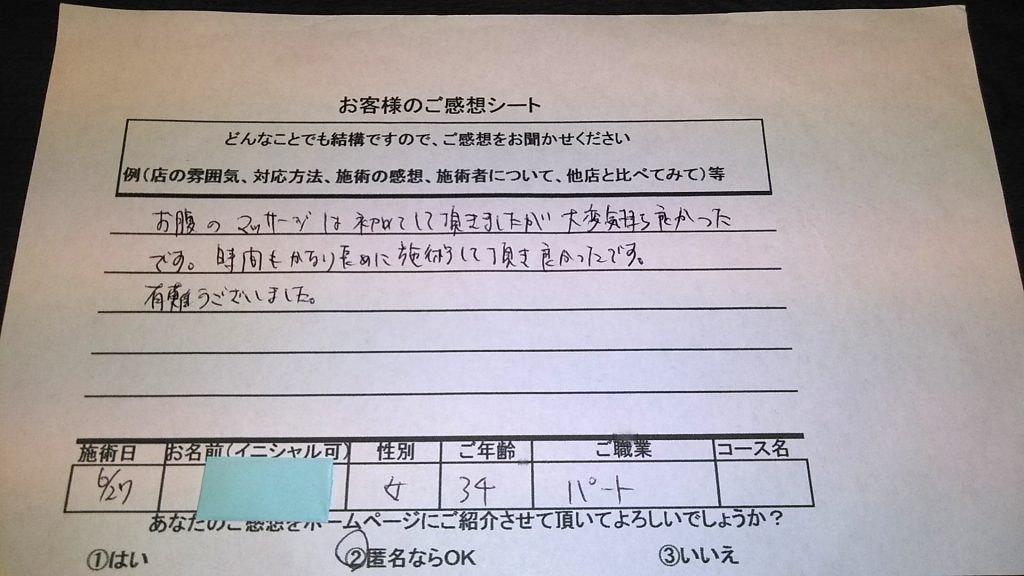 お客様のご感想シート
どんなことでも結構ですので、ご感想をお聞かせください
例(店の雰囲気、対応方法、施術の感想、施術者について、他店と比べてみて)等
お腹のマッサージは初めてして頂きましたが大変気持ち良かった
です。時間もかなり長めに施術して頂き良かったです。
有難うございました。
施術日 お名前(イニシャル可) 性別 ご年齢 ご職業 コース名
6/27 女 34 パート
あなたのご感想をホームページにご紹介させて頂いてよろしいでしょうか?
①はい ②匿名ならOK ③いいえ